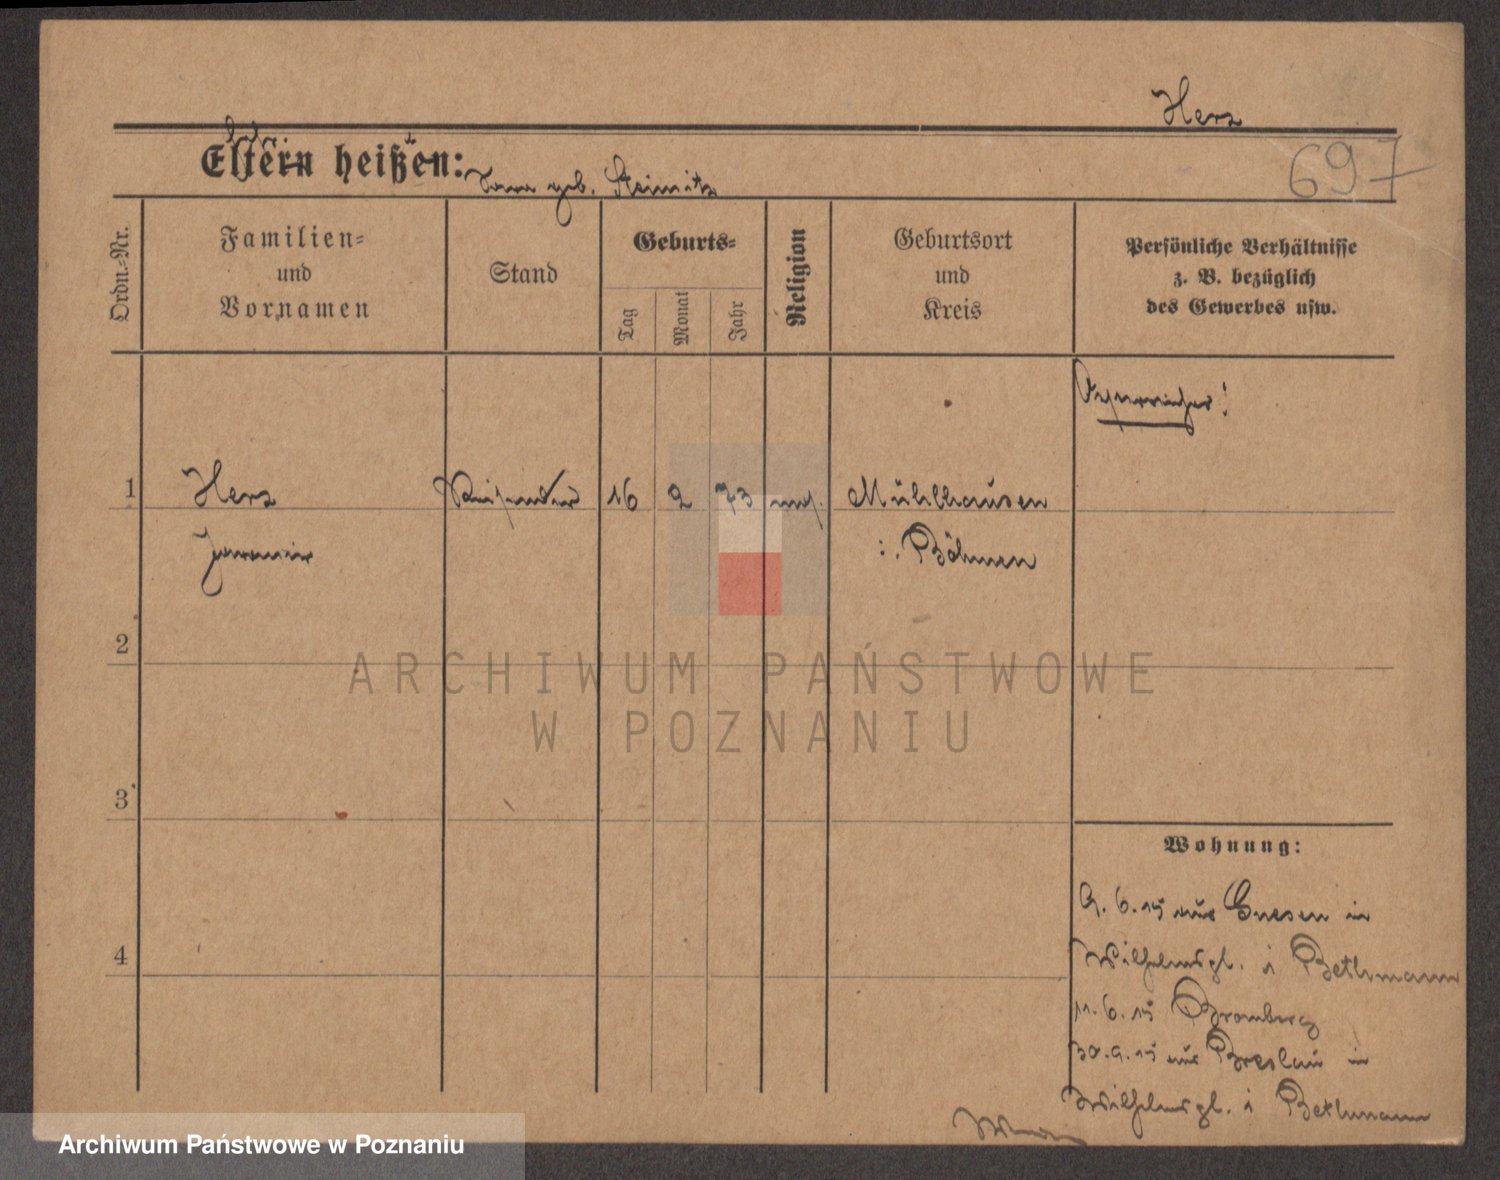 Herz
697
Eltern heißen:
geb. Steinitz
Ordn.-Nr.
Familien-
und
Vornamen
Stand
Geburts-
Tag
Monat
Jahr
Religion
Geburtsort
und
Kreis
Persönliche Verhältnisse
z. B. bezüglich
des Gewerbes usw.
Österreicher!
1 Herz Reisender 16 2 73 mos. Mühlhausen
i. Böhmen
2
3
4
ARCHIWUM PAŃSTWOWE
W POZNANIU
Wohnung:
9. 6. 15 aus Gnesen in
Wilhelmspl. 1 Bethmann
11. 6. 15 Bromberg
30. 9. 15 aus Breslau in
Wilhelmspl. 1 Bethmann
Archiwum Państwowe w Poznaniu